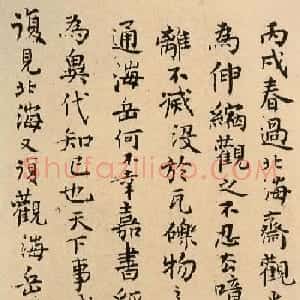 丙戌春過北海齋觀
為伸縮觀之不忍去
離不滅沒於瓦礫物
通海岳何幸嘉書
為異代知己也天下事
復見北海又得觀海岳
shufaziliao.com